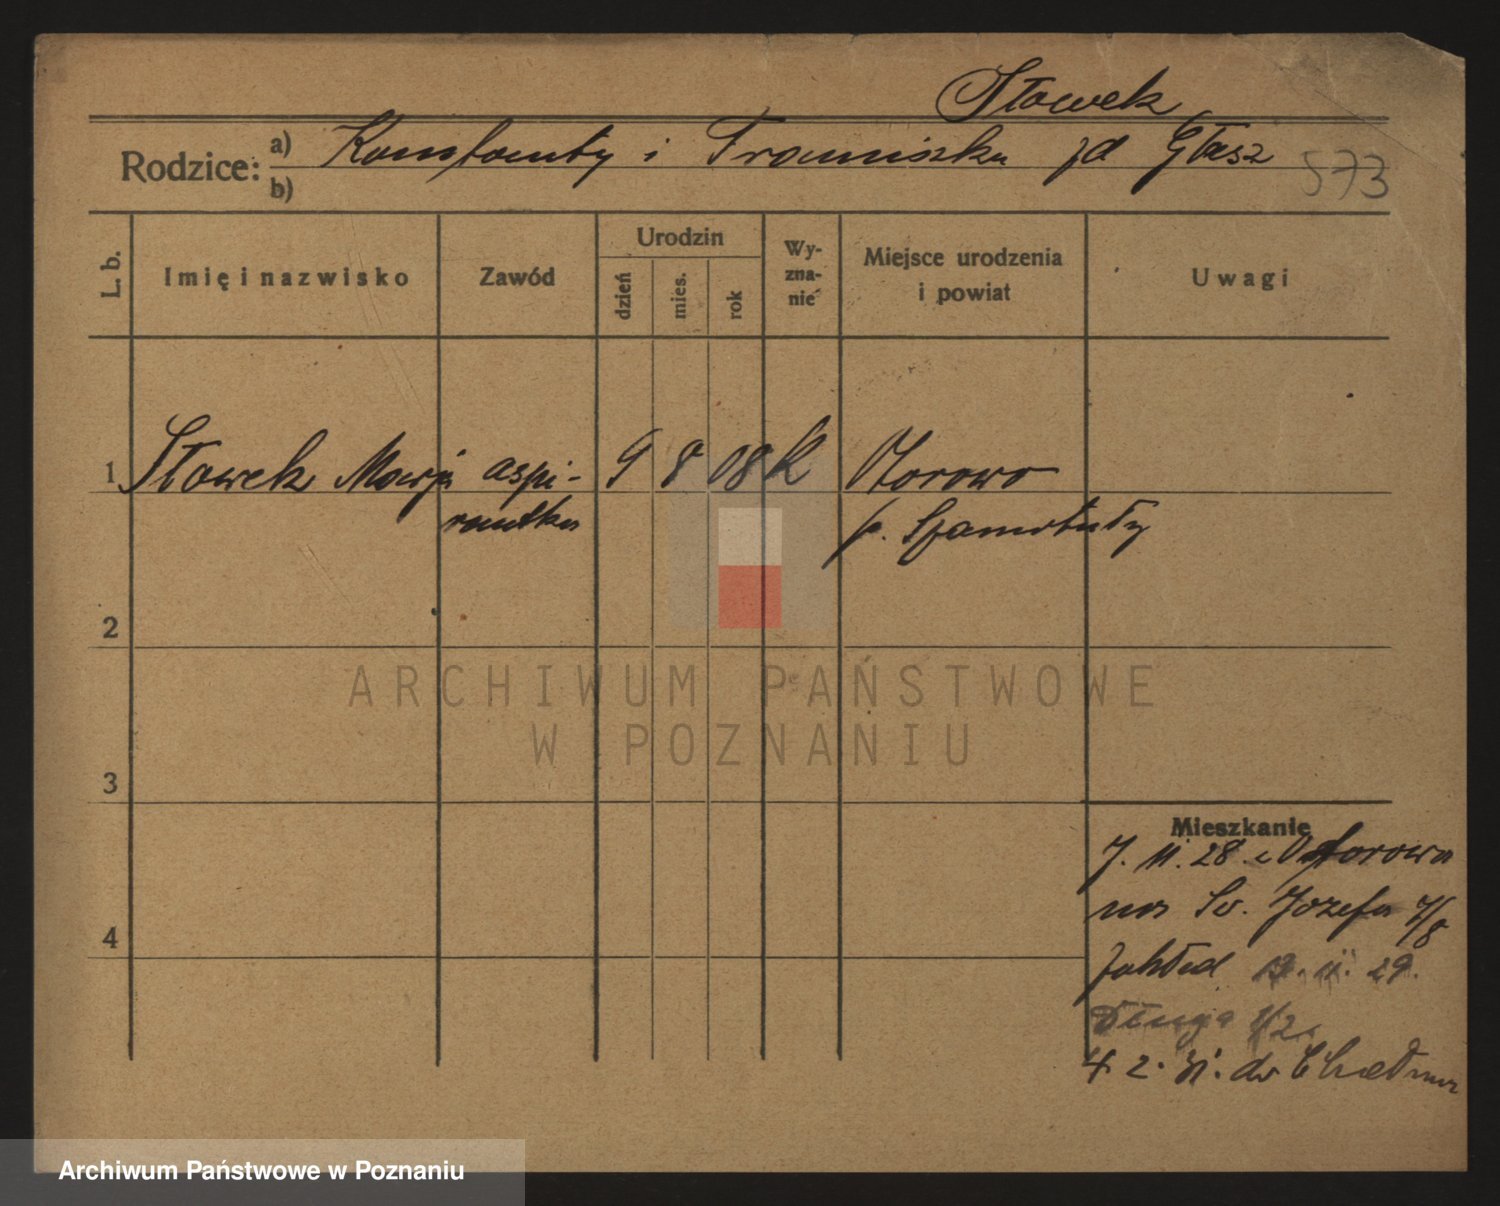 Sławek
Rodzice:
a) Konstanty i Franciszka zd Głasz
b)
573
L. b.
Imię i nazwisko
Zawód
Urodzin
dzień
mies.
rok
Wy-
zna-
nie
Miejsce urodzenia
i powiat
Uwagi
1 Sławek Marja aspi- 9 8 08 K Otorowo
rantka p. Szamotuły
2
ARCHIWUM PAŃSTWOWE
W POZNANIU
3
Mieszkanie
7. 11. 28 z Otorowa
na Sw. Józefa 7/8
zakład 12. 11. 29.
Długa 1/2
4. 2. 31. do Chełmna
4
Archiwum Państwowe w Poznaniu